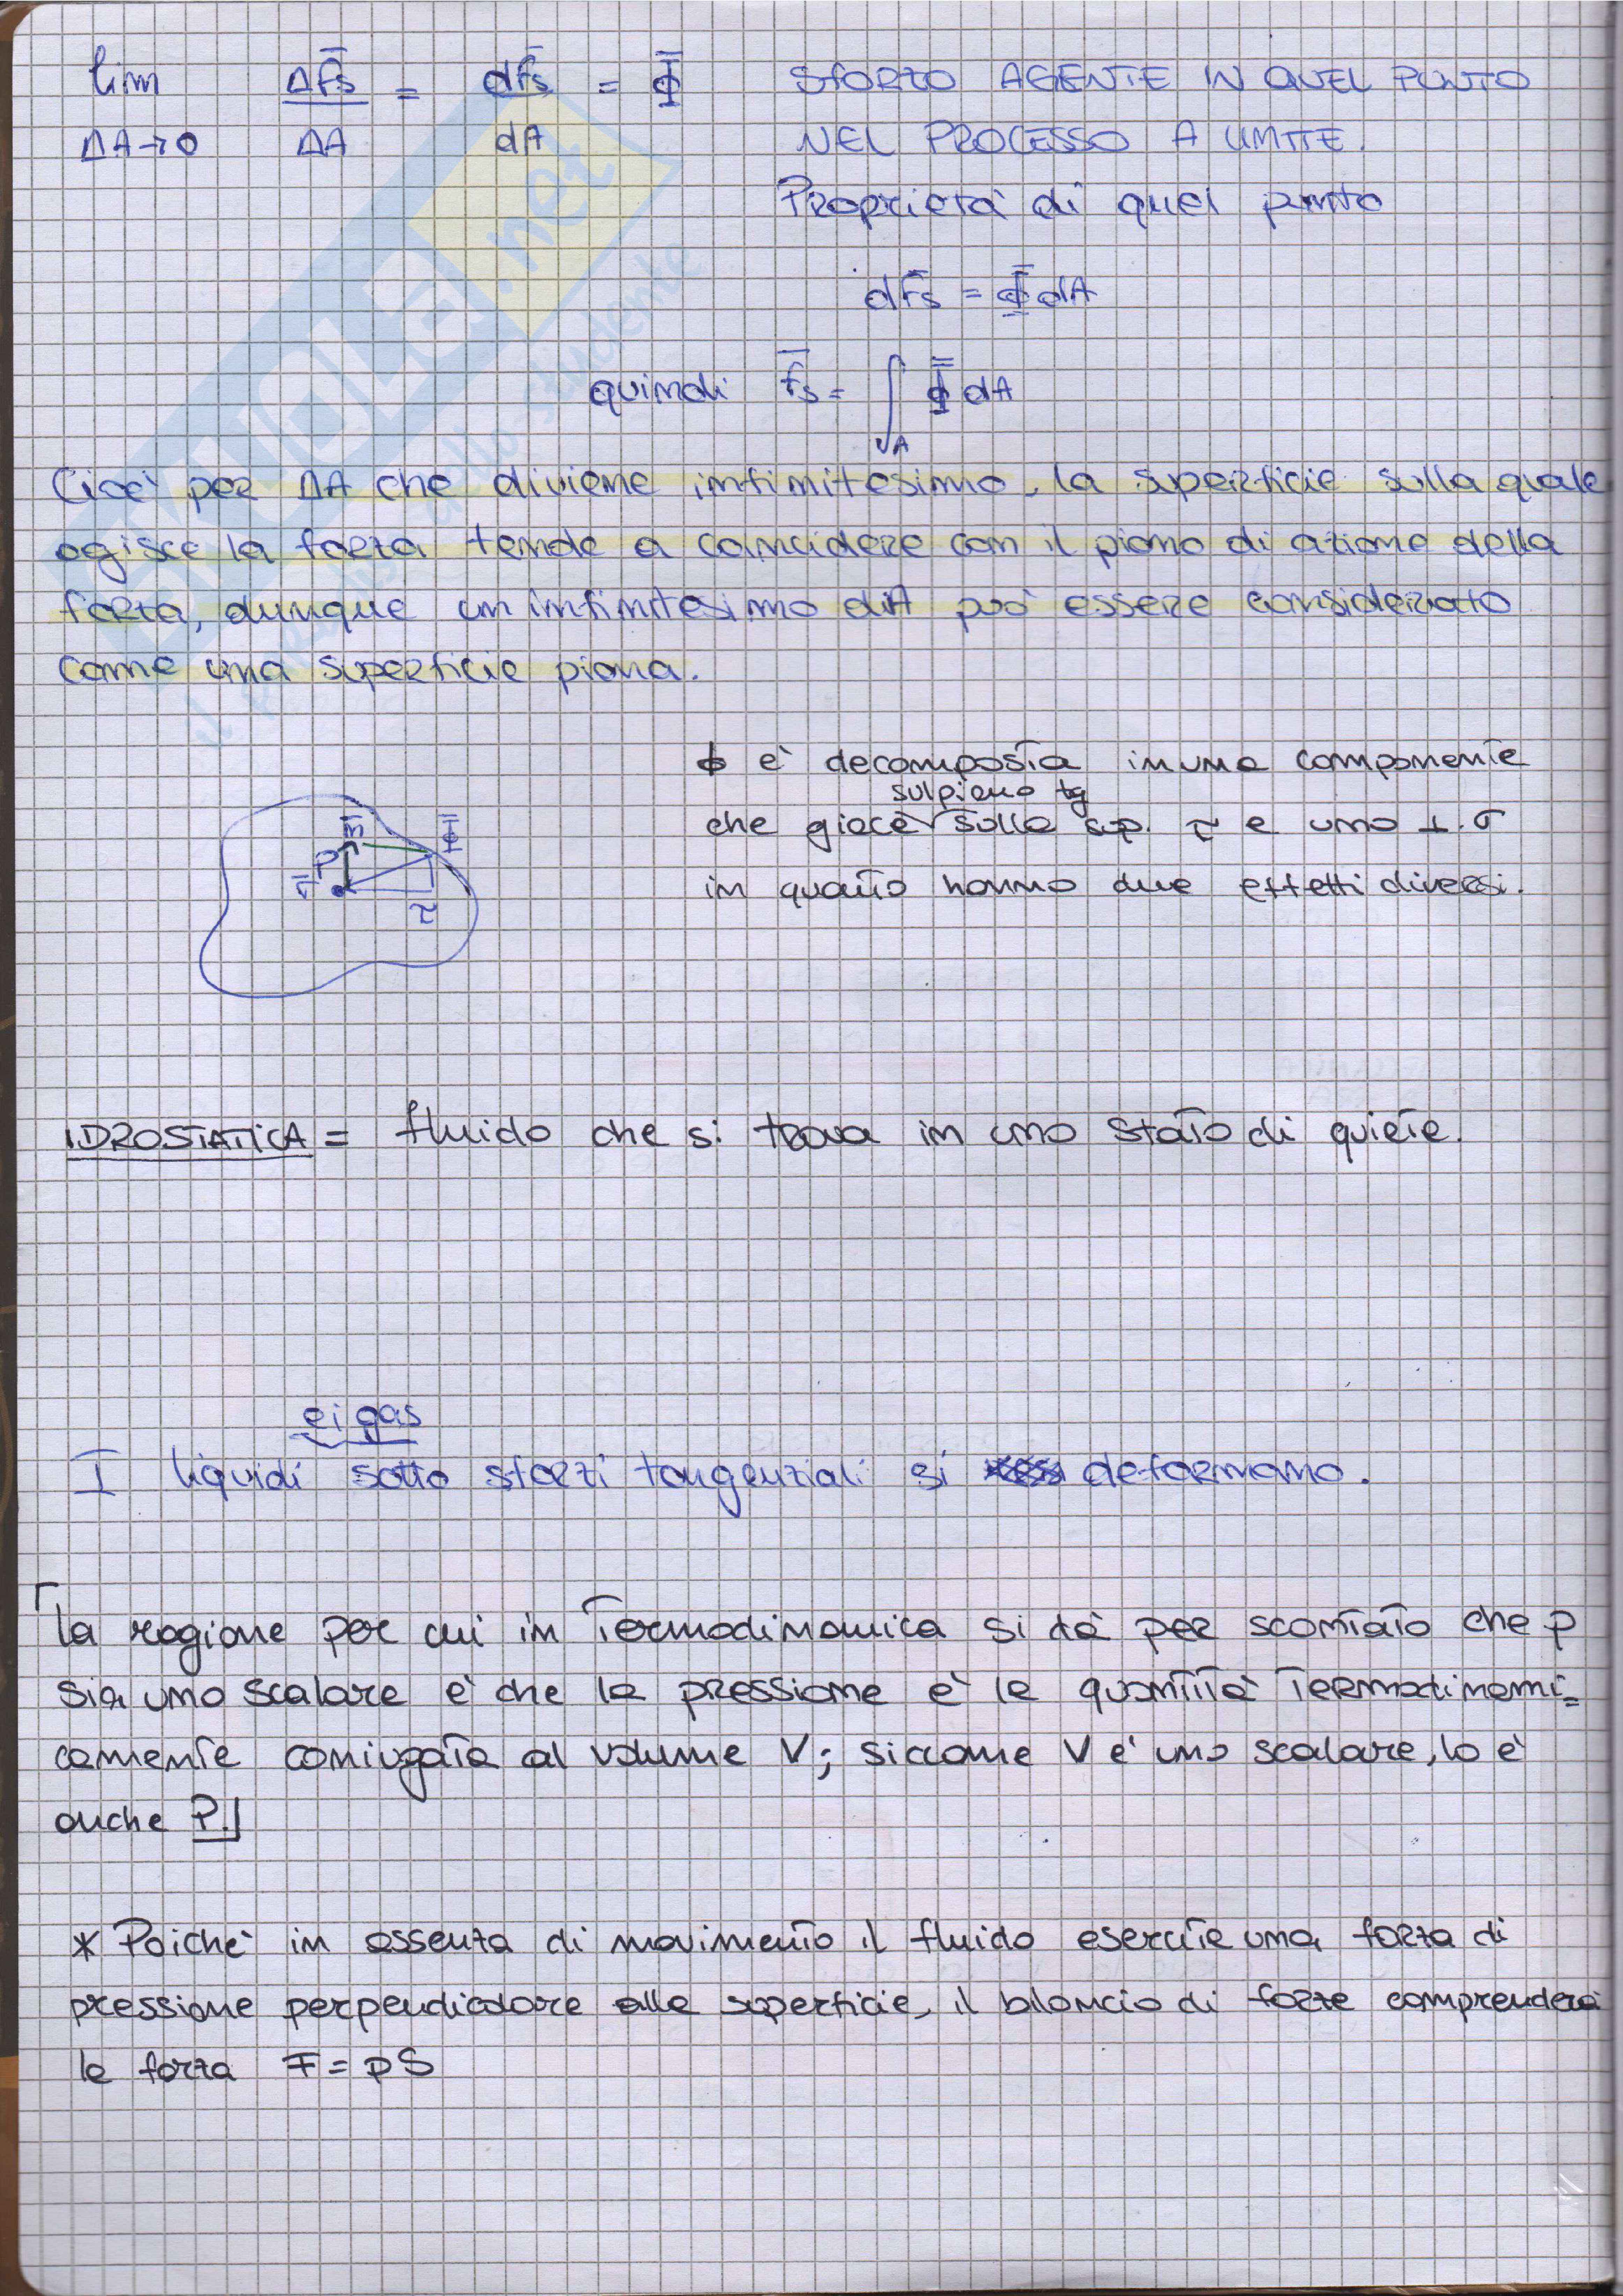 lim ΔF̄s = dF̄s = Φ̿ SFORZO AGENTE IN QUEL PUNTO
ΔA→0 ΔA dA NEL PROCESSO A LIMITE.
Proprietà di quel punto
dF̄s = Φ̿ dA
quindi F̄s = ∫A Φ̿ dA
Cioè per ΔA che diviene infinitesimo, la superficie sulla quale
agisce la forza tende a coincidere con il piano di azione della
forza, dunque un infinitesimo dA può essere considerato
come una superficie piana.
Φ è decomposta in una componente
sul piano tg
che giace sulla sup. τ e una ⊥ σ
in quanto hanno due effetti diversi.
n̄ Φ̿
P
σ̄
τ
IDROSTATICA = fluido che si trova in uno stato di quiete.
e i gas
I liquidi sotto sforzi tangenziali si deformano.
⌈La ragione per cui in Termodinamica si dà per scontato che p
sia uno scalare è che la pressione è la quantità Termodinami=
camente coniugata al volume V; siccome V è uno scalare, lo è
anche P.⌋
* Poichè in assenza di movimento il fluido esercita una forza di
pressione perpendicolare alla superficie, il bilancio di forze comprenderà
la forza F = pS
SKUOLA.net
il paradiso dello studente